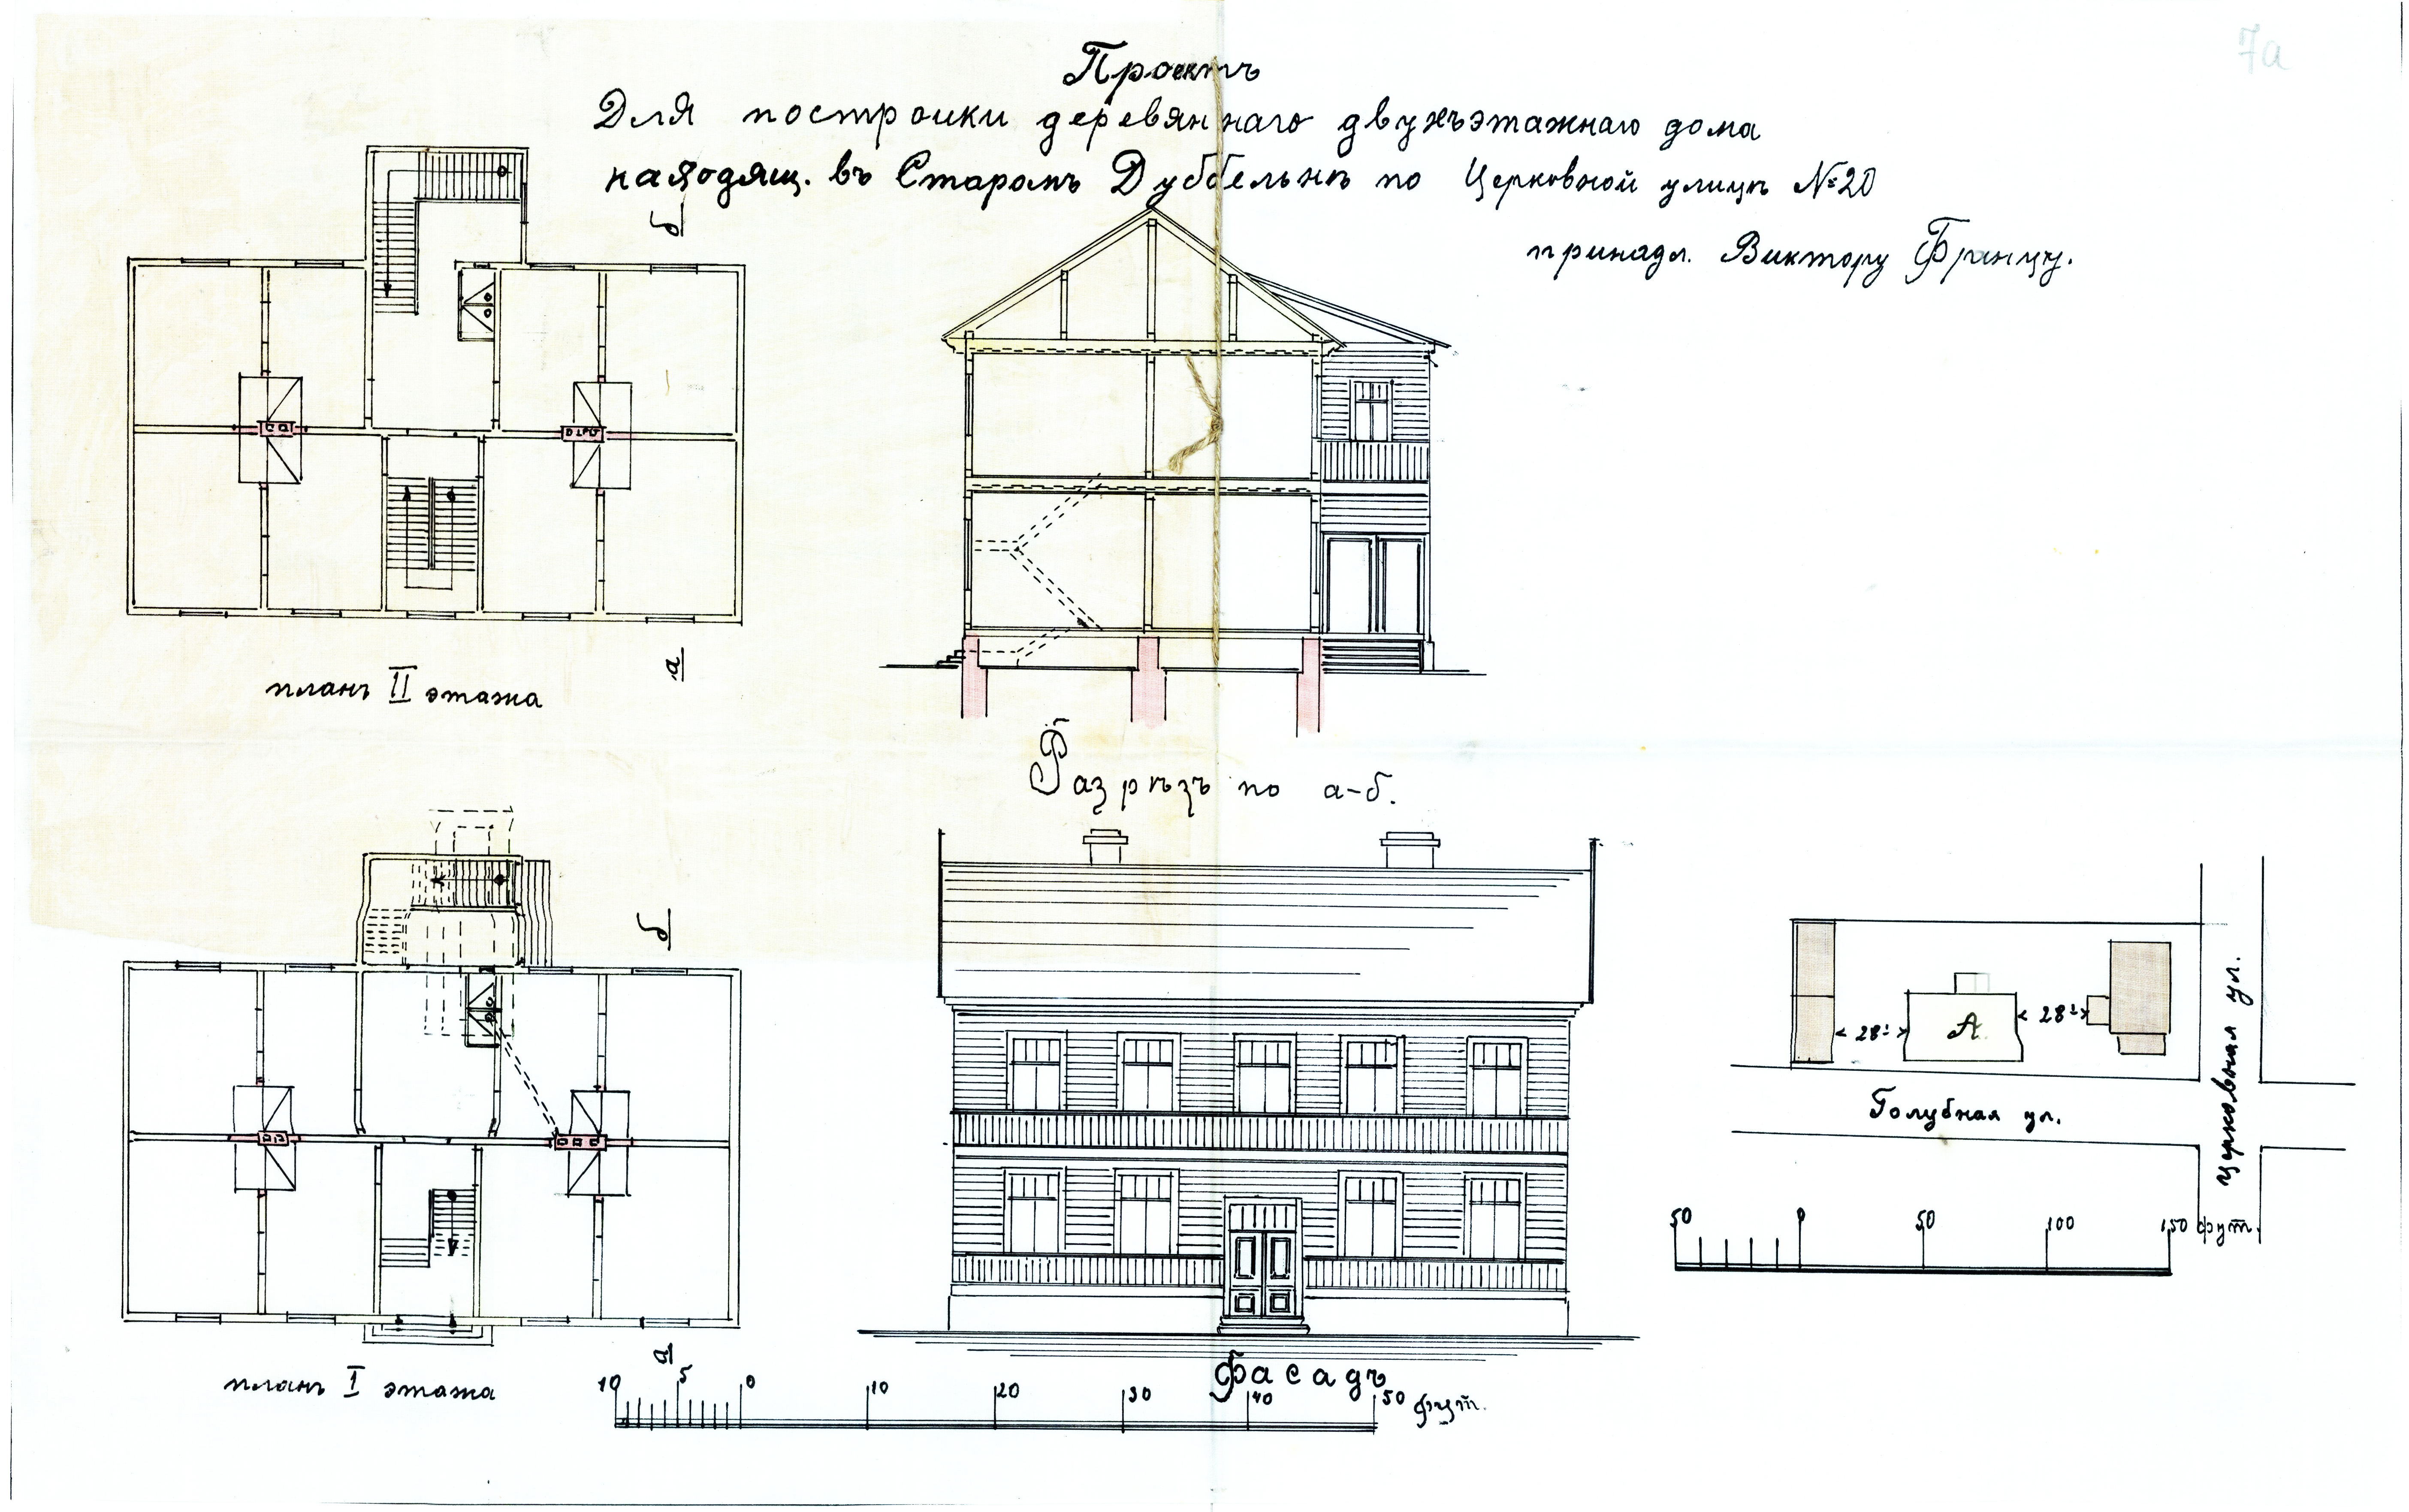 7а
Проектъ
Для постройки деревяннаго двухъэтажнаго дома
находящ. въ Старомъ Дуббельнѣ по Церковной улицѣ №20
принадл. Виктору Францу.
б
планъ II этажа
а
Разрѣзъ по а-б.
б
планъ I этажа
а
Фасадъ
10 5 0 10 20 30 40 50 фут.
28'
А
28'
Голубная ул.
Церковная ул.
50 0 50 100 150 фут.